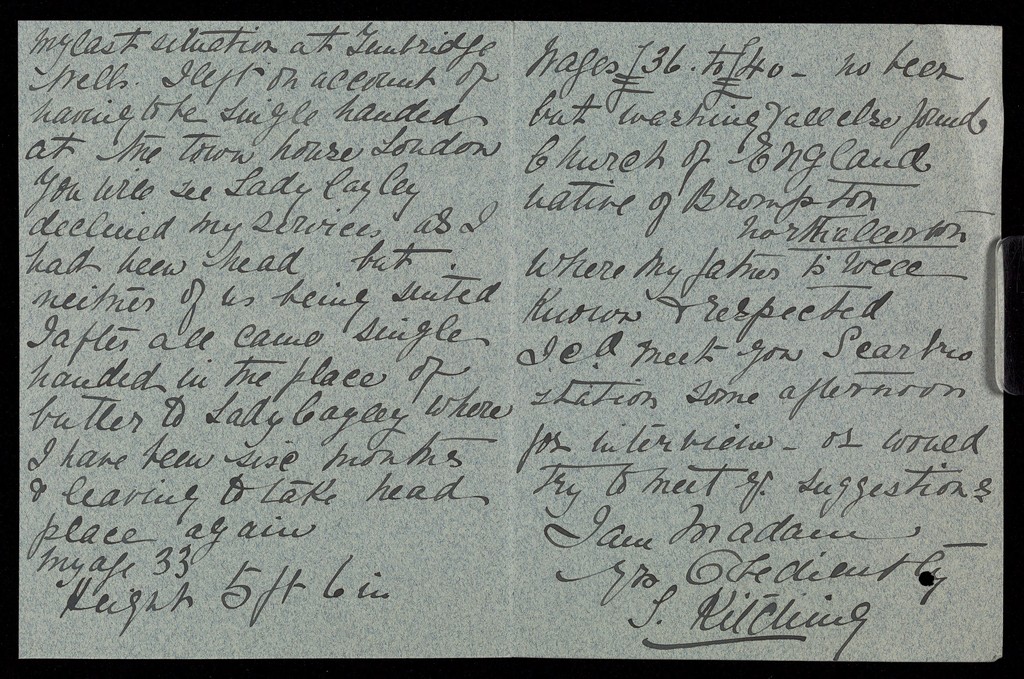 My last situation at Tunbridge
Wells. I left on account of
having to be single handed
at the town house London
You will see Lady Cayley
declined my services as I
had been head but.
neither of us being suited
I after all came single
handed in the place of
butler to Lady Cayley where
I have been six months
& leaving to take head
place again
My age 33
Height 5 ft 6 in
Wages £36. to £40 - no beer
but washing & all else found
Church of England
native of Brompton
Northallerton
where my father is well
known & respected
I cd meet you Scarbro
station some afternoon
for interview - or would
try to meet yr. suggestions
I am Madam
Yrs Obediently
S. Kitching